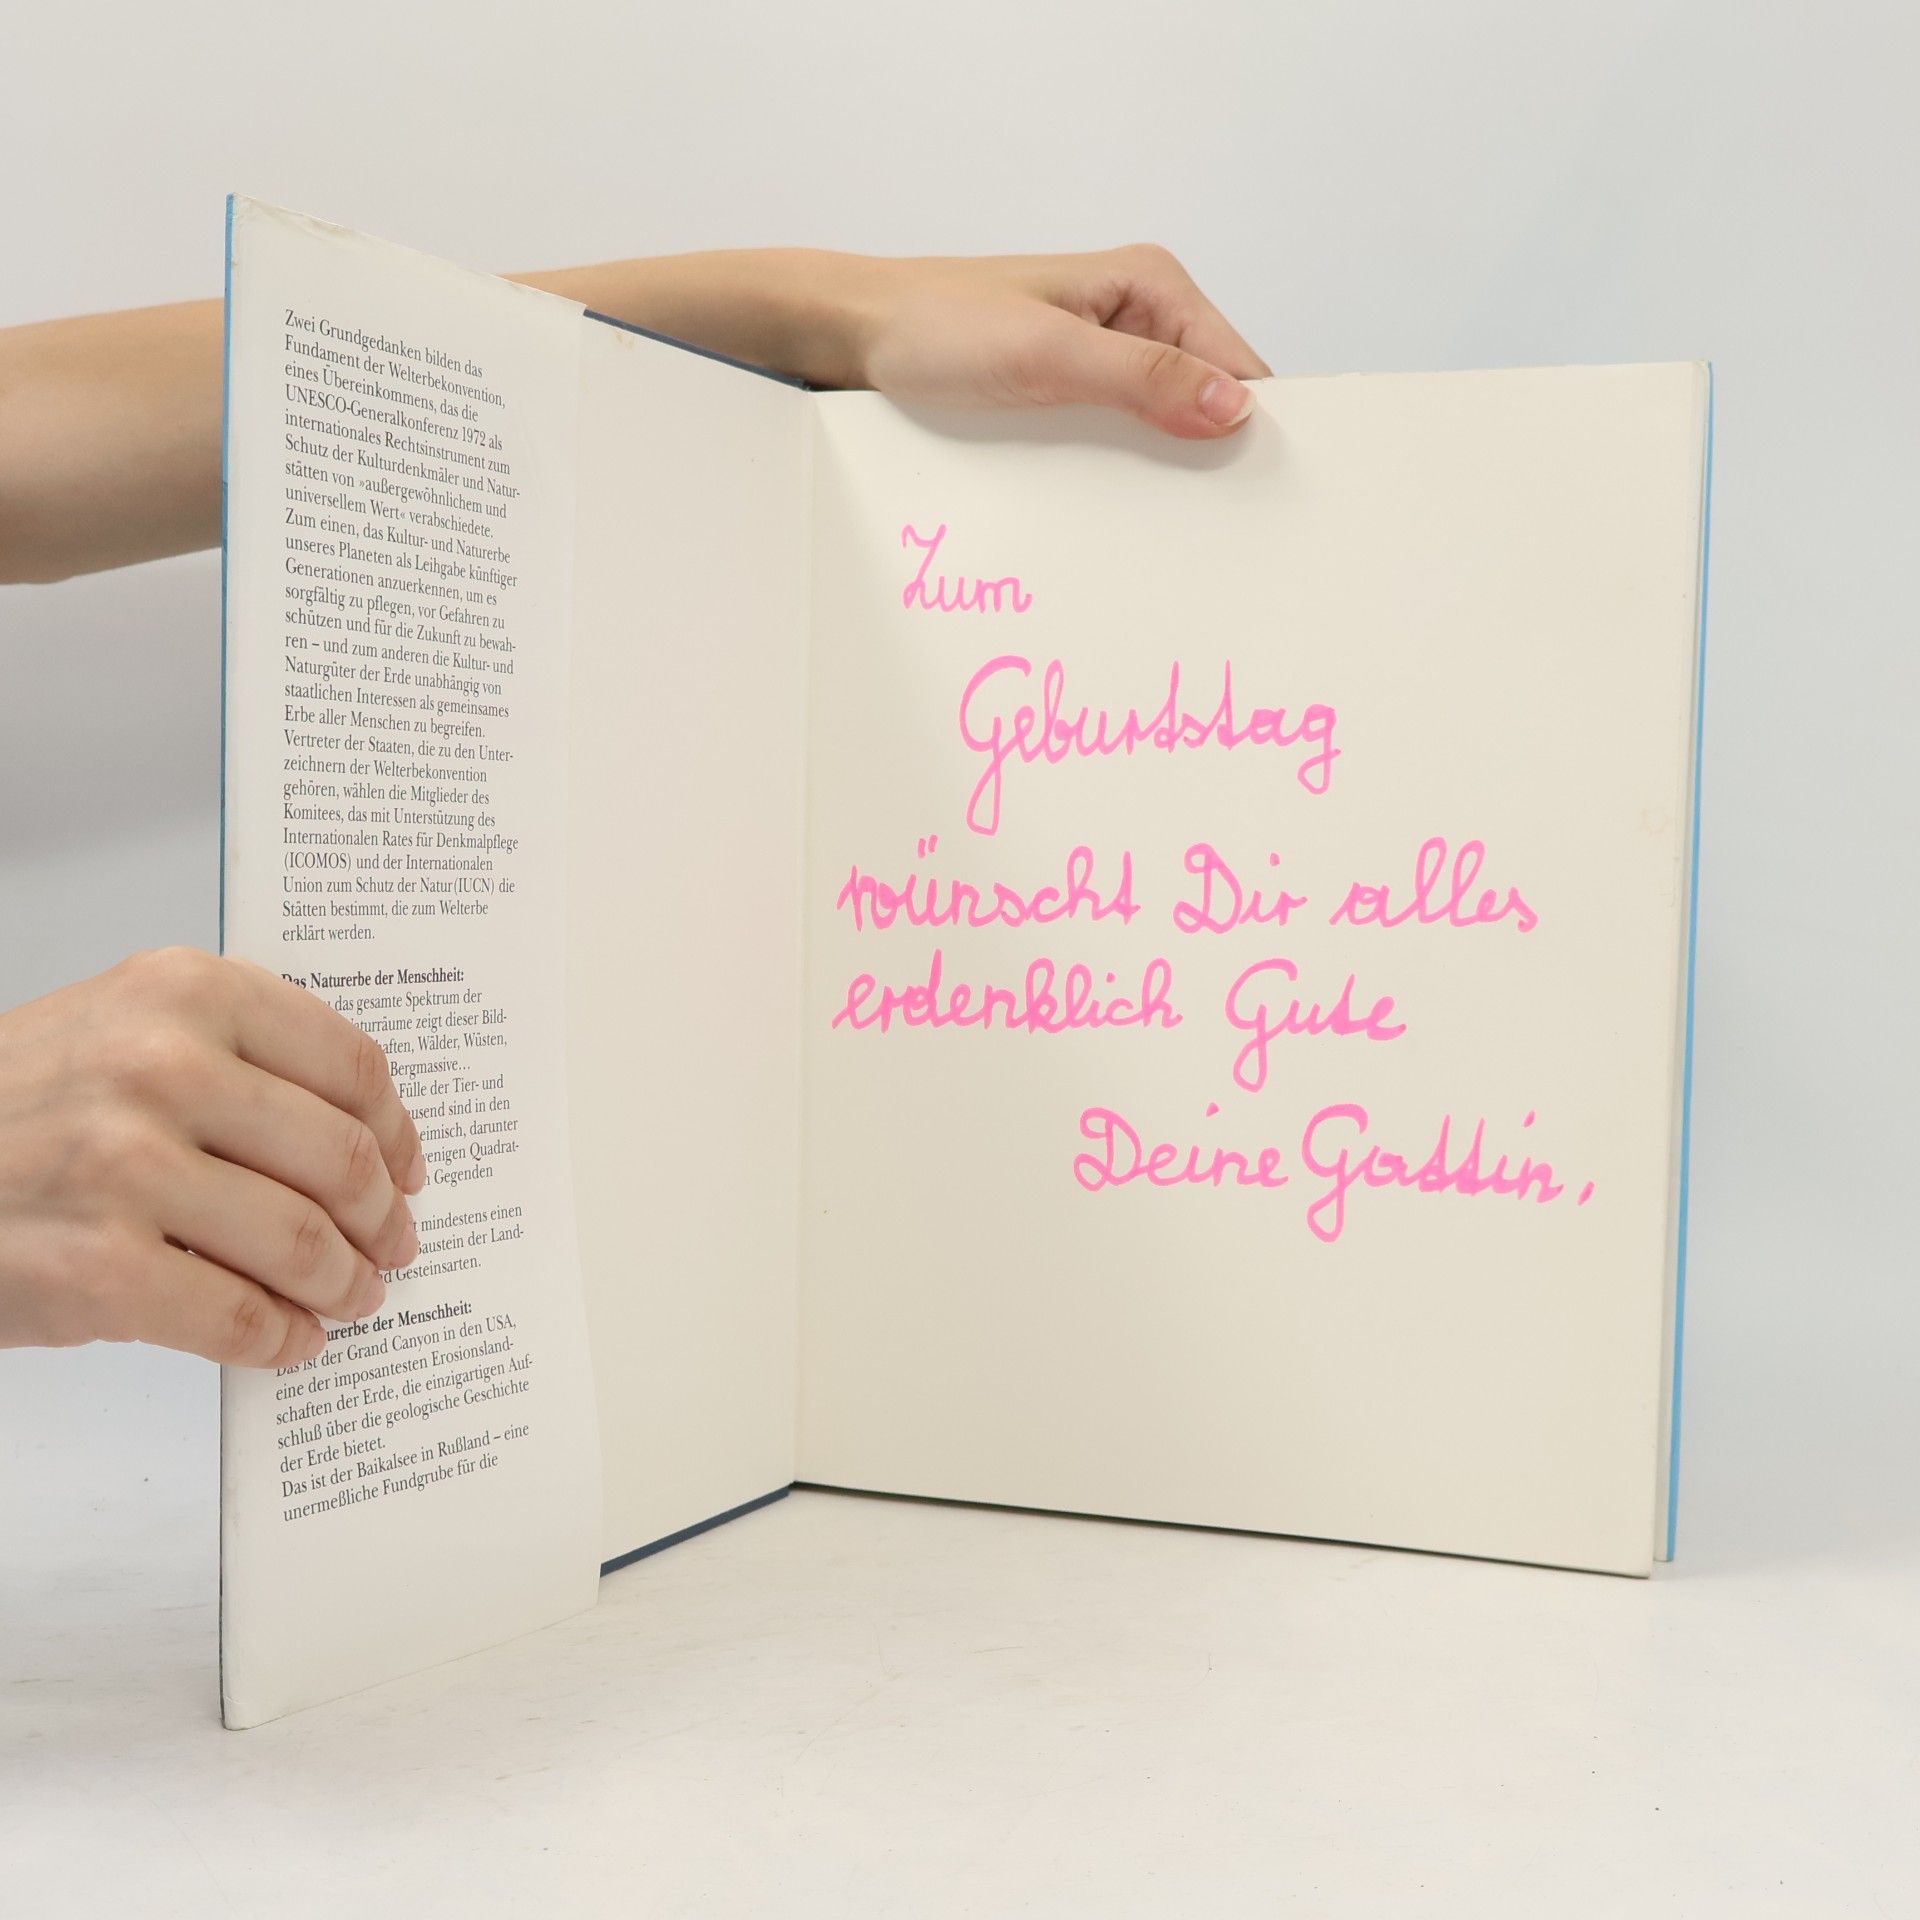 Zwei Grundgedanken bilden das
Fundament der Welterbekonvention,
eines Übereinkommens, das die
UNESCO-Generalkonferenz 1972 als
internationales Rechtsinstrument zum
Schutz der Kulturdenkmäler und Natur-
stätten von »außergewöhnlichem und
universellem Wert« verabschiedete.
Zum einen, das Kultur- und Naturerbe
unseres Planeten als Leihgabe künftiger
Generationen anzuerkennen, um es
sorgfältig zu pflegen, vor Gefahren zu
schützen und für die Zukunft zu bewah-
ren – und zum anderen die Kultur- und
Naturgüter der Erde unabhängig von
staatlichen Interessen als gemeinsames
Erbe aller Menschen zu begreifen.
Vertreter der Staaten, die zu den Unter-
zeichnern der Welterbekonvention
gehören, wählen die Mitglieder des
Komitees, das mit Unterstützung des
Internationalen Rates für Denkmalpflege
(ICOMOS) und der Internationalen
Union zum Schutz der Natur (IUCN) die
Stätten bestimmt, die zum Welterbe
erklärt werden.
Das Naturerbe der Menschheit:
das gesamte Spektrum der
zeigt dieser Bild-
Wälder, Wüsten,
Bergmassive...
Fülle der Tier- und
sind in den
darunter
wenigen Quadrat-
Gegenden
mindestens einen
Baustein der Land-
Gesteinsarten.
der Menschheit:
Das ist der Grand Canyon in den USA,
eine der imposantesten Erosionsland-
schaften der Erde, die einzigartigen Auf-
schluß über die geologische Geschichte
der Erde bietet.
Das ist der Baikalsee in Rußland – eine
unermeßliche Fundgrube für die
Zum
Geburtstag
wünscht Dir alles
erdenklich Gute
Deine Gattin,